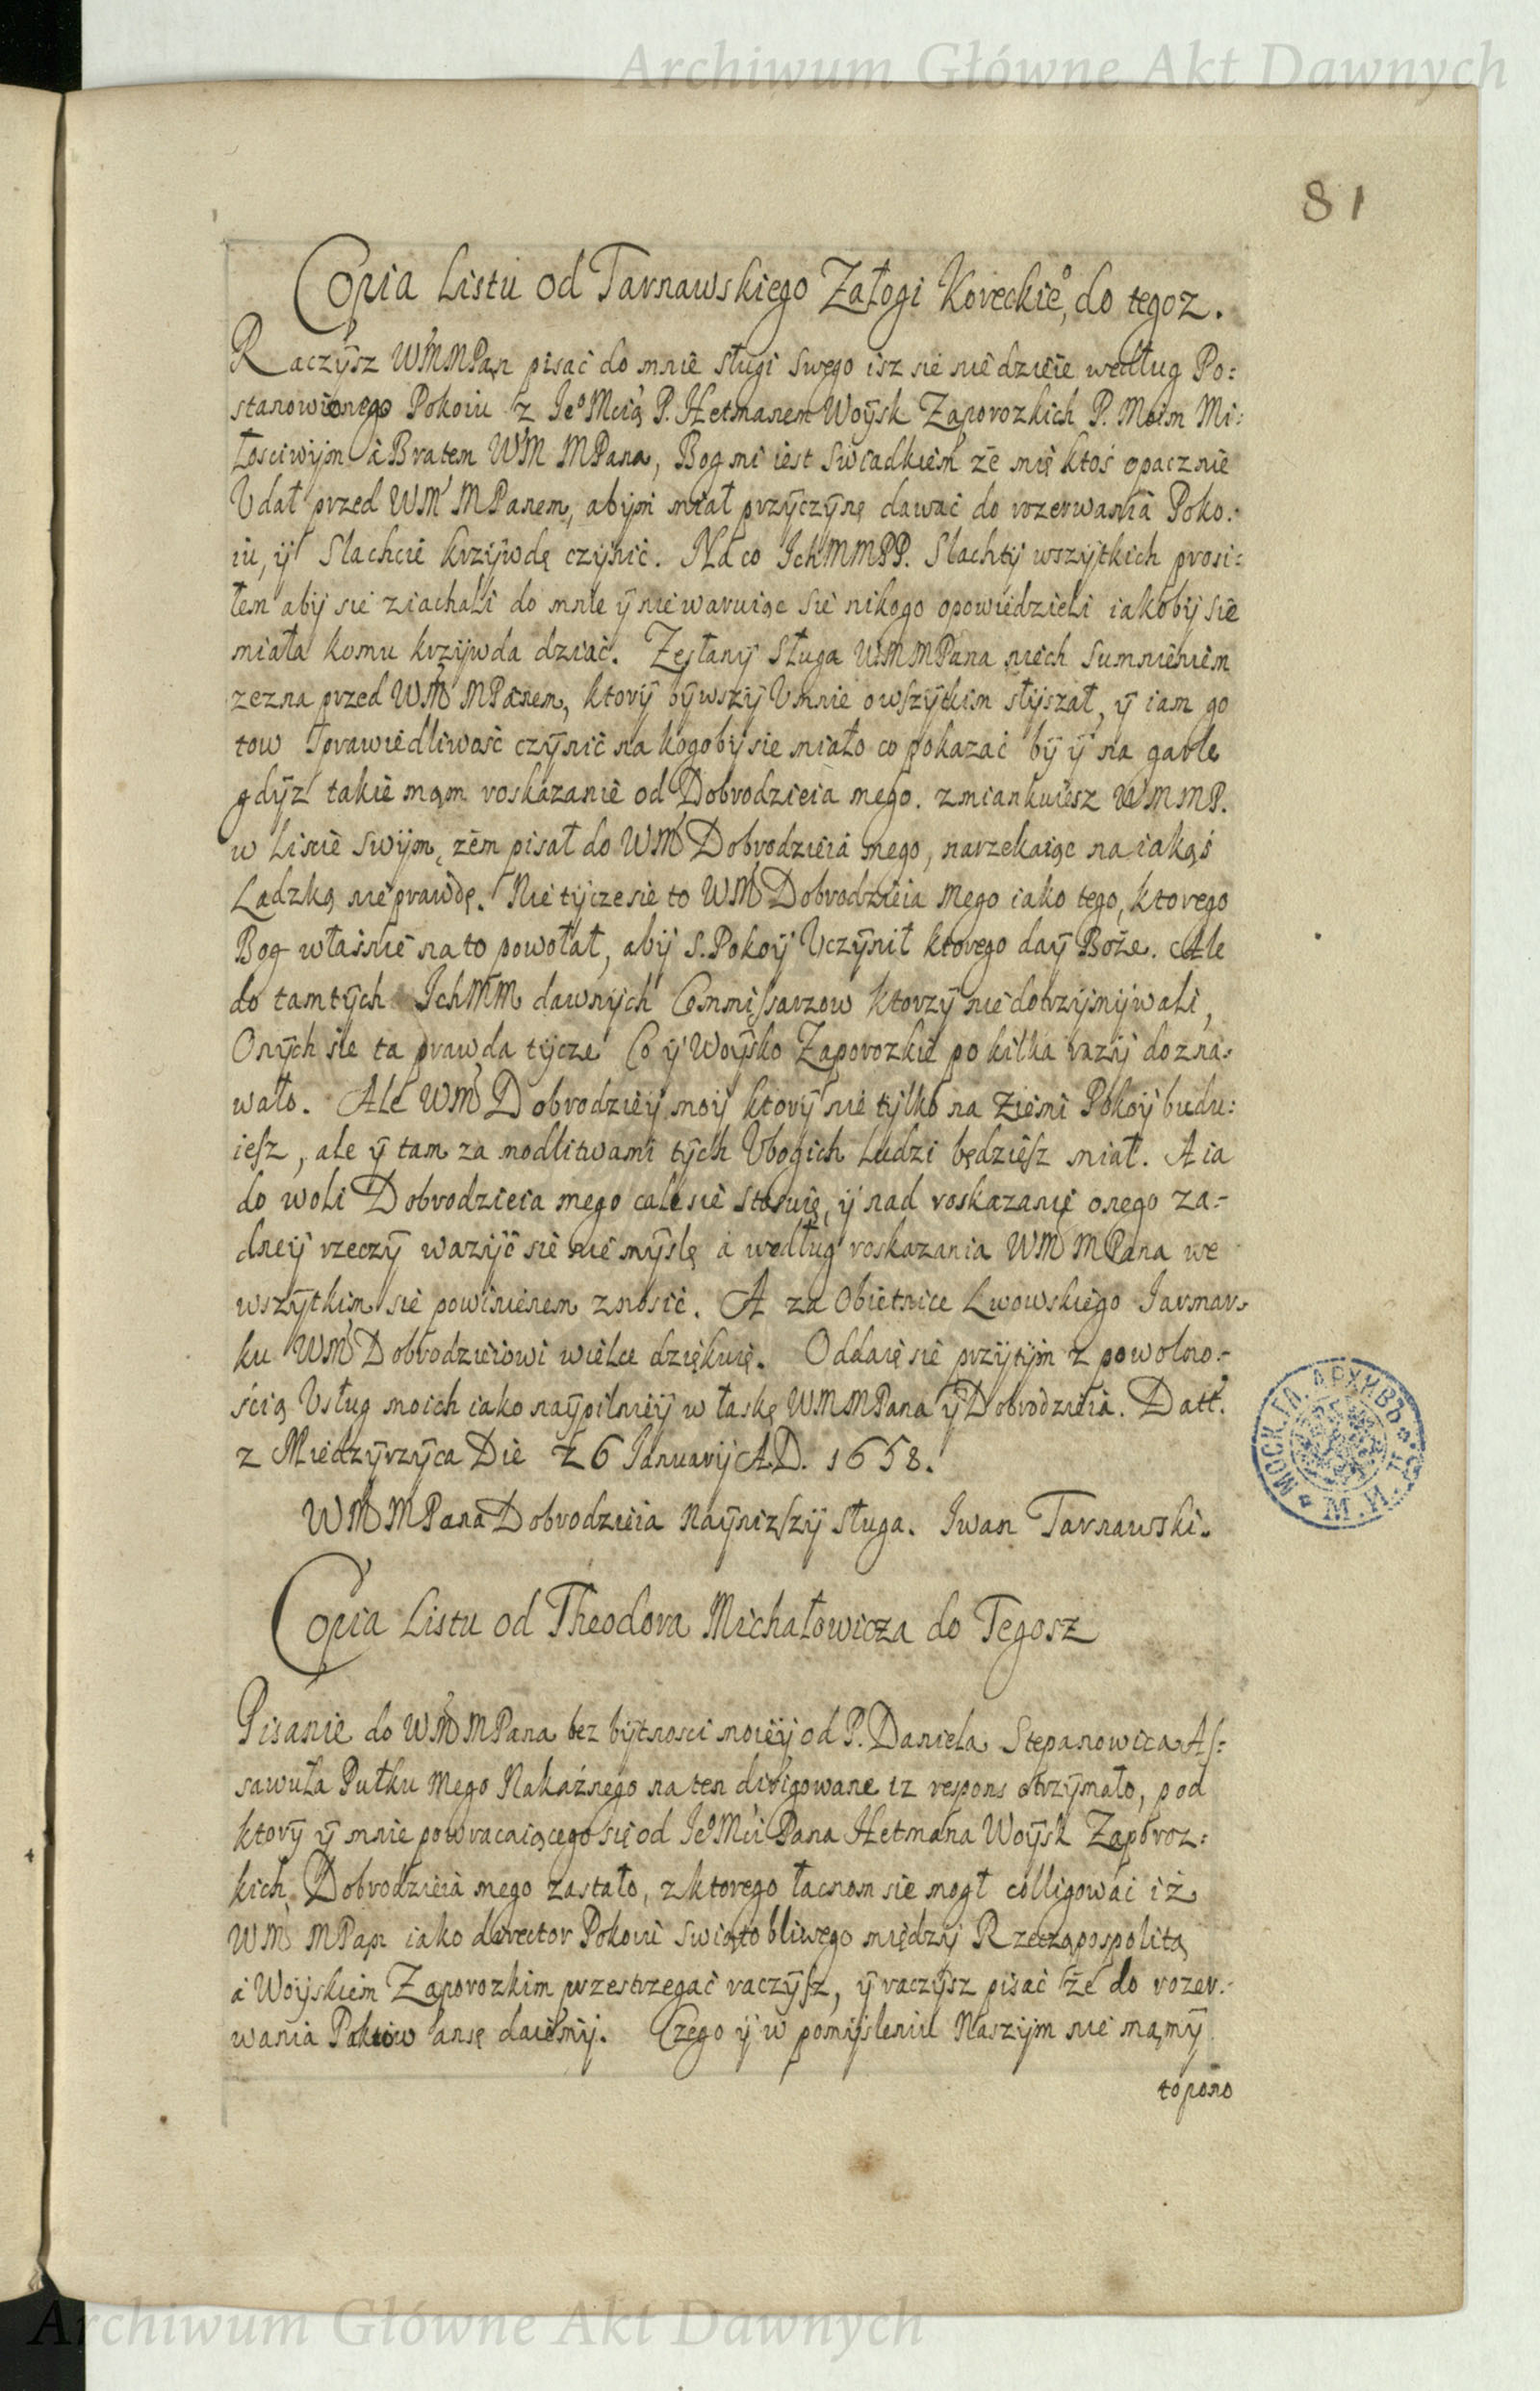 Archiwum Główne Akt Dawnych
81
Copia Listu od Tarnawskiego Załogi Koreckieº, do tegoz.
Raczÿsz WMMPan pisać do mnie sługi swego isz sie nie dzieie według Po:
stanowionego Pokoiu z IeºMcią P. Hetmanem Woÿsk Zaporozkich P. Moim Mi:
łosciwÿm a Bratem WM MPana, Bog mi iest swiadkiem że mię ktoś opacznie
Vdał przed WM MPanem, abÿm miał przÿczÿnę dawać do rozerwania Poko:
iu, ÿ Slachcie krzÿwdę czÿnić. Na co IchMMPP. Slachtÿ wszÿtkich prosi:
łem abÿ sie ziachali do mnie ÿ nie waruiąc sie nikogo opowiedzieli iakobÿ sie
miała komu krzÿwda dziać. Zesłanÿ Sługa WMMPana niech Sumnieniem
zezna przed WM MPanem, ktorÿ bÿwszÿ Vmnie owszÿtkim słÿszał, ÿ iam go
tow sprawiedliwość czÿnić na kogobÿ sie miało co pokazać bÿ ÿ na garle
gdÿz takie mąm roskazanie od Dobrodzieia mego. zmiankuiesz WMMP.
w Liscie swÿm, żem pisał do WM Dobrodzieia mego, narzekaiąc na iakąś
Ladzką nieprawdę. Nie tÿcze sie to WM Dobrodzieia mego iako tego, ktorego
Bog własnie na to powołał, abÿ S. Pokoÿ Vczÿnił ktorego daÿ Boże. Ale
do tamtÿch IchMM dawnÿch Commissarzow ktorzÿ nie dotrzÿmÿwali,
Onÿch sie ta prawda tÿcze Co ÿ Woÿsko Zaporozkie po kilka razÿ dozna:
wało. Ale WM Dobrodzieÿ moÿ ktorÿ nie tÿlko na Ziemi Pokoÿ budu:
iesz, ale ÿ tam za modlitwami tÿch Vbogich Ludzi będziesz miał. A ia
do woli Dobrodzieia mego cale sie stosuię, ÿ nad roskazanie onego ża-
dneÿ rzeczÿ ważÿć sie nie mÿslę a według roskazania WM MPana we
wszÿtkim sie powinienem znosić. A za Obietnice Lwowskiego Iarmar:
ku WM Dobrodzieiowi wielce dziękuię. Oddaię sie przÿtÿm z powolno:
ścią Vsług moich iako naÿpilnieÿ w łaskę WMMPana ÿ Dobrodzieia. Datt.
z Miedzÿrzÿca Die 26 Ianuarij A.D. 1658.
WM MPana Dobrodzieia Naÿnizszÿ sługa. Iwan Tarnawski.
Copia Listu od Theodora Michałowicza do Tegosz
Pisanie do WM MPana bez bÿtnosci moieÿ od P. Daniela Stepanowicza As:
sawuła Pułku mego Nakaźnego na ten dirigowane iz respons otrzÿmało, pod
ktorÿ ÿ mnie powracaiącego się od IeºMci Pana Hetmana Woÿsk Zaporoz:
kich Dobrodzieia mego zastało, z ktorego łacnom sie mogł colligowac iż
WM MPan iako director Pokoiu swiątobliwego międzÿ Rzecząpospolitą
a Woÿskiem Zaporozkim przestrzegać raczÿsz, ÿ raczÿsz pisać że do rozer:
wania Paktow ansę daiemÿ. Czego ÿ w pomÿsleniu Naszÿm nie mąmÿ
topono
МОСК. ГЛ. АРХИВЪ
М. И. Д.
Archiwum Główne Akt Dawnych